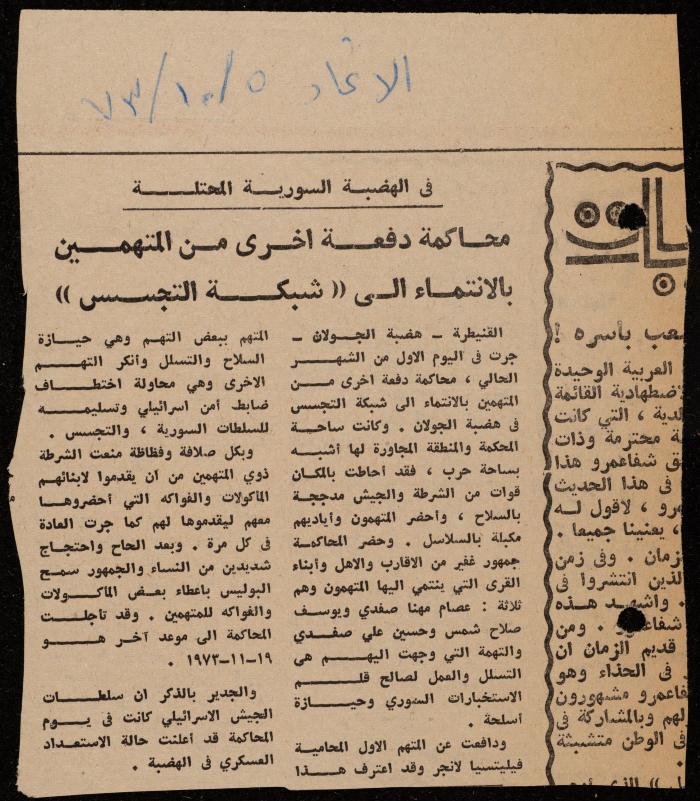 الاتحاد ٧٣/١٠/٥
في الهضبة السورية المحتلة
محاكمة دفعة اخرى من المتهمين
بالانتماء الى (( شبكة التجسس ))
القنيطرة - هضبة الجولان -
جرت في اليوم الاول من الشهر
الحالي ، محاكمة دفعة اخرى من
المتهمين بالانتماء الى شبكة التجسس
في هضبة الجولان . وكانت ساحة
المحكمة والمنطقة المجاورة لها أشبه
بساحة حرب ، فقد أحاطت بالمكان
قوات من الشرطة والجيش مدججة
بالسلاح ، وأحضر المتهمون وأياديهم
مكبلة بالسلاسل . وحضر المحاكمة
جمهور غفير من الاقارب والاهل وأبناء
القرى التي ينتمي اليها المتهمون وهم
ثلاثة : عصام مهنا صفدي ويوسف
صلاح شمس وحسين علي صفدي
والتهمة التي وجهت اليهم هي
التسلل والعمل لصالح قلم
الاستخبارات السوري وحيازة
أسلحة .
ودافعت عن المتهم الاول المحامية
فيليتسيا لانجر وقد اعترف هذا
المتهم ببعض التهم وهي حيازة
السلاح والتسلل وأنكر التهم
الاخرى وهي محاولة اختطاف
ضابط أمن اسرائيلي وتسليمه
للسلطات السورية ، والتجسس .
وبكل صلافة وفظاظة منعت الشرطة
ذوي المتهمين من أن يقدموا لابنائهم
المأكولات والفواكه التي أحضروها
معهم ليقدموها لهم كما جرت العادة
في كل مرة . وبعد الحاح واحتجاج
شديدين من النساء والجمهور سمح
البوليس باعطاء بعض المأكولات
والفواكه للمتهمين . وقد تأجلت
المحاكمة الى موعد آخر هو
١٩-١١-١٩٧٣ .
والجدير بالذكر ان سلطات
الجيش الاسرائيلي كانت في يوم
المحاكمة قد أعلنت حالة الاستعداد
العسكري في الهضبة .
بأسره !
العربية الوحيدة
القائمة
، التي كانت
محترمة وذات
شفاعمرو هذا
في هذا الحديث
، لاقول له
، يعنينا جميعا .
. وفي زمن
الذين انتشروا في
. واشهد هذه
. ومن
قديم الزمان ان
في الحذاء وهو
مشهورون
لهم وبالمشاركة في
الوطن متشبثة